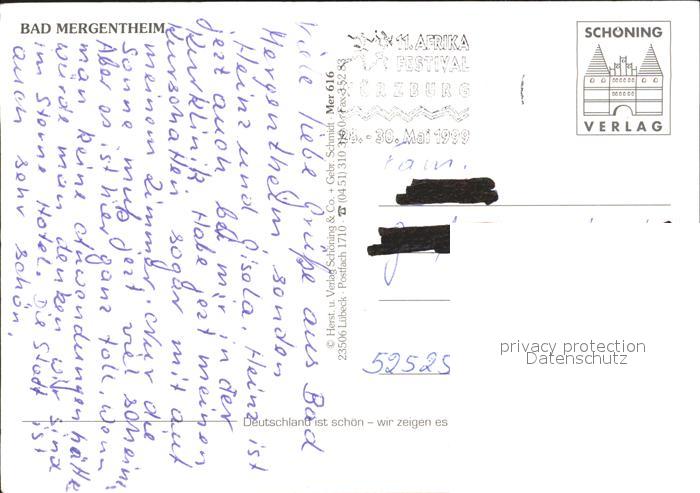 BAD MERGENTHEIM
Viele liebe Grüße aus Bad
Mergentheim senden
Heinz und Gisela. Heinz ist
jezt auch bei mir in der
Kurklinik. Habe jezt meinen
Kurschatten sogar mit auf
meinem Zimmer. Nur die
Sonne muß jezt viel scheinen
Aber es ist hier ganz toll, wenn
man keine Anwendungen hätte
würde man denken wir sind
im Sterne Hotel. Die Stadt ist
auch sehr schön.
© Herst. u. Verlag Schöning & Co. + Gebr. Schmidt · Mer 616
23506 Lübeck · Postfach 1710 · ☎ (04 51) 310 3
11. AFRIKA
FESTIVAL
WÜRZBURG
- 30. Mai 1999
SCHÖNING
VERLAG
Fam.
52525
privacy protection
Datenschutz
Deutschland ist schön – wir zeigen es